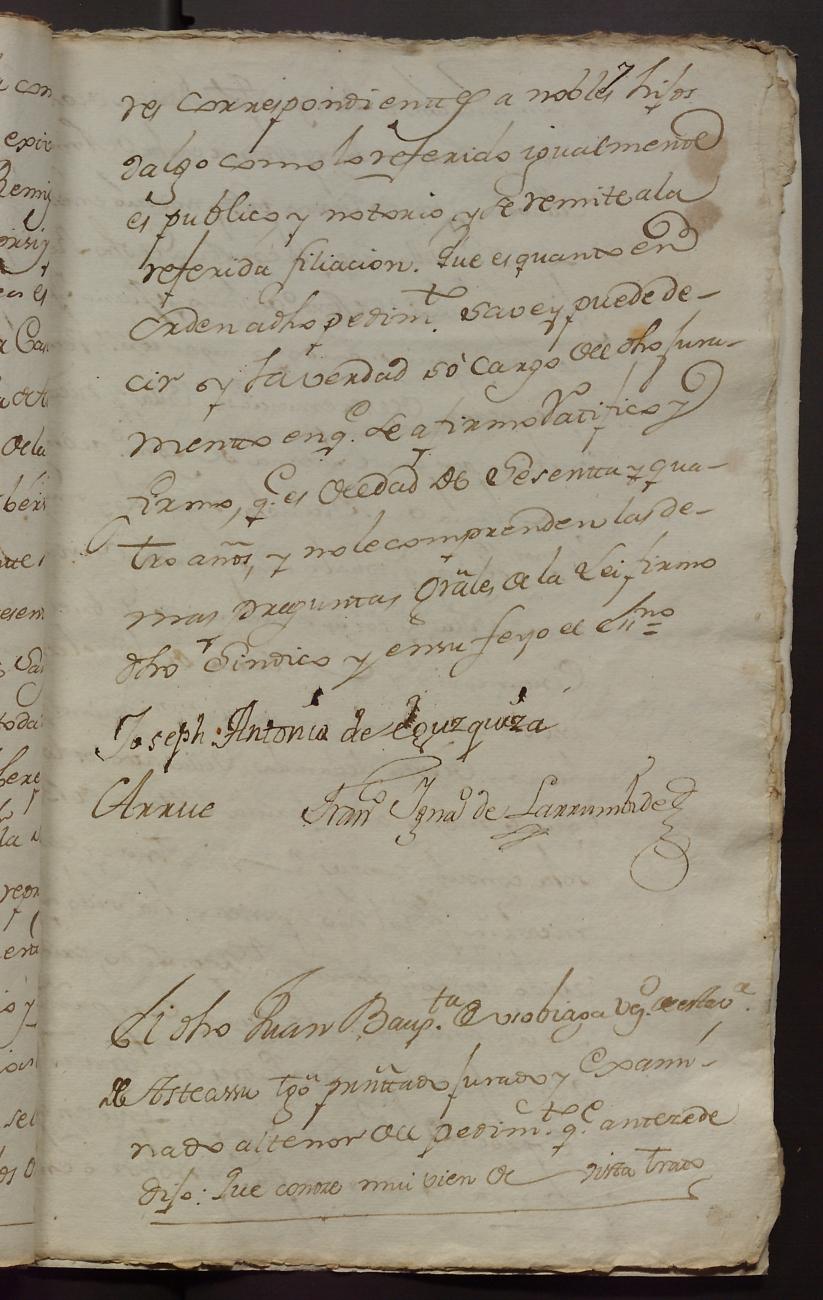 res correspondienttes a nobles hijos
dalgo como lo referido igualmente
es publico y notorio, y se remite ala
referida filiacion. Que es quanto en
orden adho pedimto. save y puede de-
cir y la verdad so cargo del dho jura-
mentto en q.e se afirmo Ratifico y
firmo, q.e es de edad de Sesentta y qua-
tro años, y nole comprenden las de-
mas preguntas Grãles de la Lei firmo
dho Sindico y en su fe yo el Ssno
Joseph Antonio de Eguzquiza
Arrue Franco Ignao de Larrumbide
El dho Juan Baup.ta de Usobiaga vo. de esta va.
de Asteassu tgo presenttado jurado y Exami-
nado al tenor del pedimto. q.e antezede
dijo: Que conoze mui vien de vista tratto